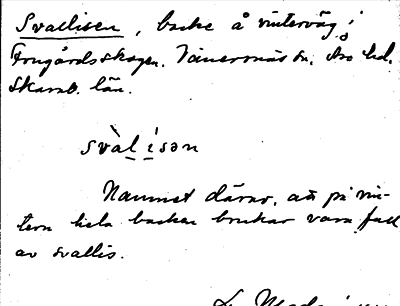 Svallisen, backe å vinterväg i
Frugårdsskogen. Vänersnäs sn. Åse hd.
Skarab. län.
svàlisən
Namnet därav, att på vin-
tern hela backen brukar vara full
av svallis.